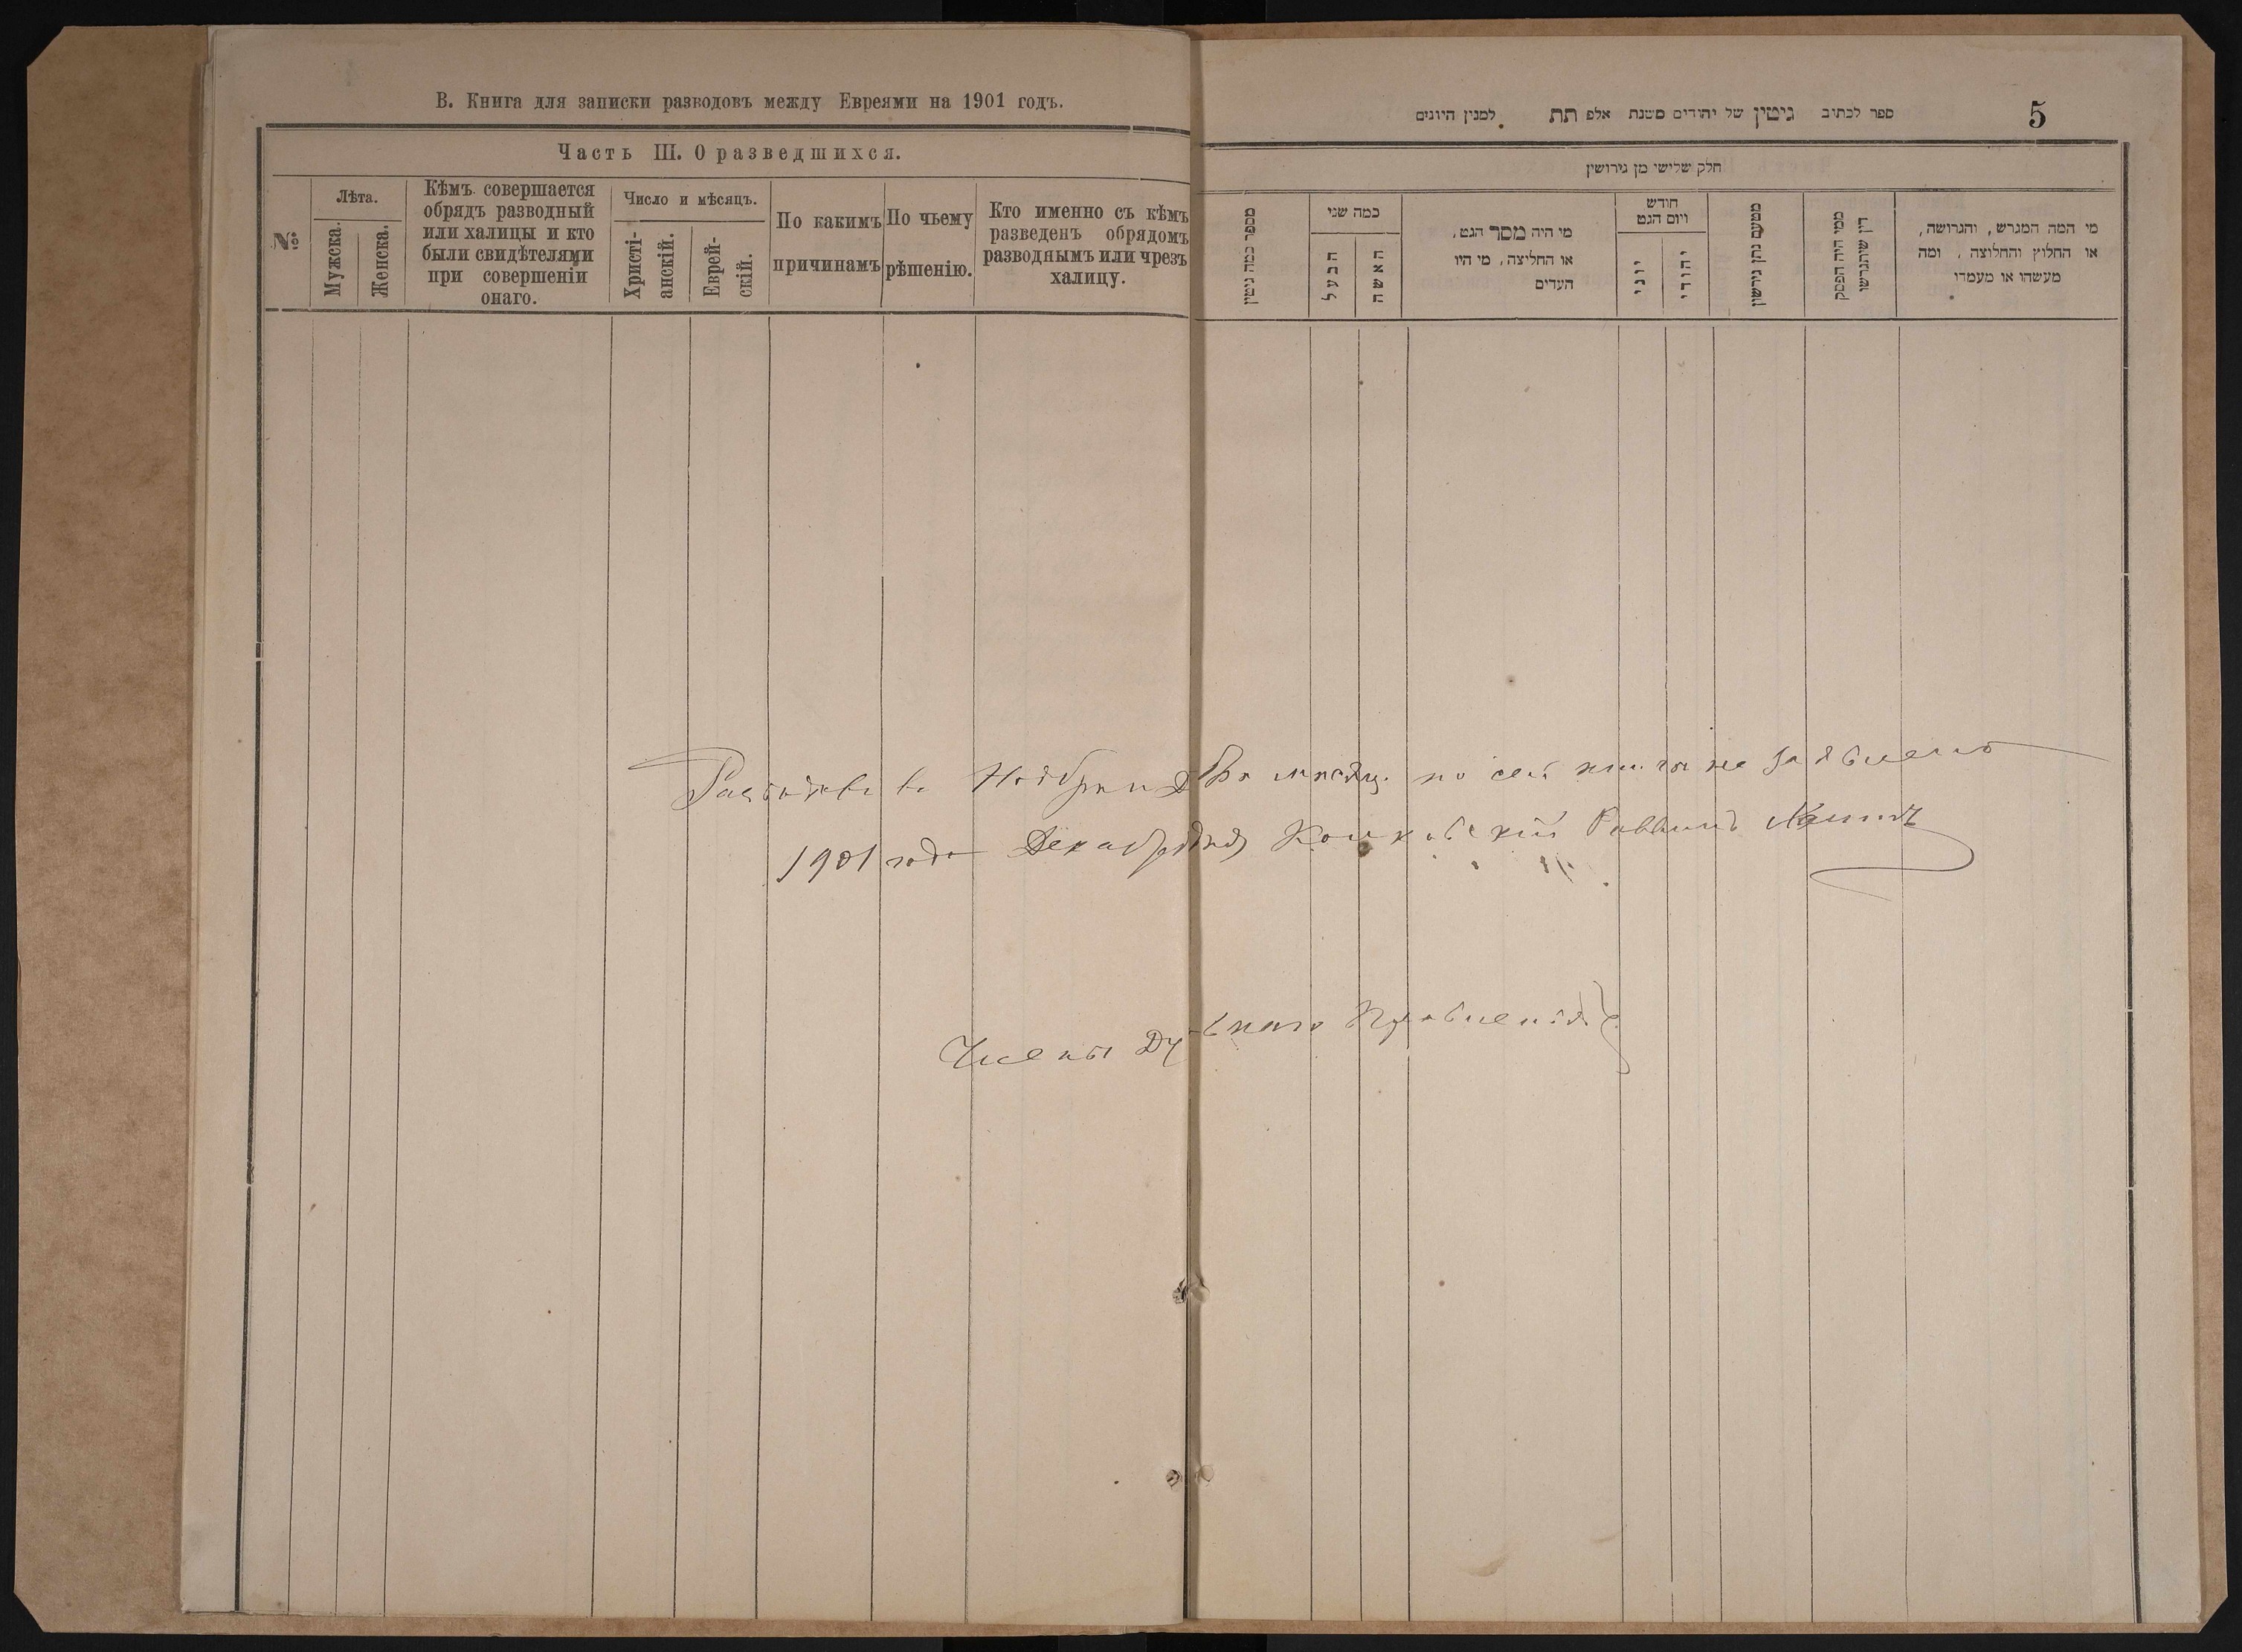 В. Книга для записки разводовъ между Евреями на 1901 годъ.
Часть III. О разведшихся.
№
Лѣта.
Мужска.
Женска.
Кѣмъ совершается
обрядъ разводный
или халицы и кто
были свидѣтелями
при совершеніи
онаго.
Число и мѣсяцъ.
Христі-
анскій.
Еврей-
скій.
По какимъ
причинамъ
По чьему
рѣшенію.
Кто именно съ кѣмъ
разведенъ обрядомъ
разводнымъ или чрезъ
халицу.
5
ספר לכתוב גיטין של יהודים משנת אלפ תת למנין היונים
חלק שלישי מן גירושין
מספר כמה גיטין
כמה שני
הבעל
האשה
מי היה מסר הגט,
או החליצה, מי היו
העדים
חודש
ויום הגט
יוני
יהודי
מטעם נתן גירושין
ממי היה הפסק
דין שיתגרשו
מי המה המגרש, והגרושה,
או החלוץ והחלוצה, ומה
מעשהו או מעמדו
въ Ноябрѣ мѣсяцѣ по сей книги не заявлено
1901 года Декабря Раввинъ
Члены Правленія